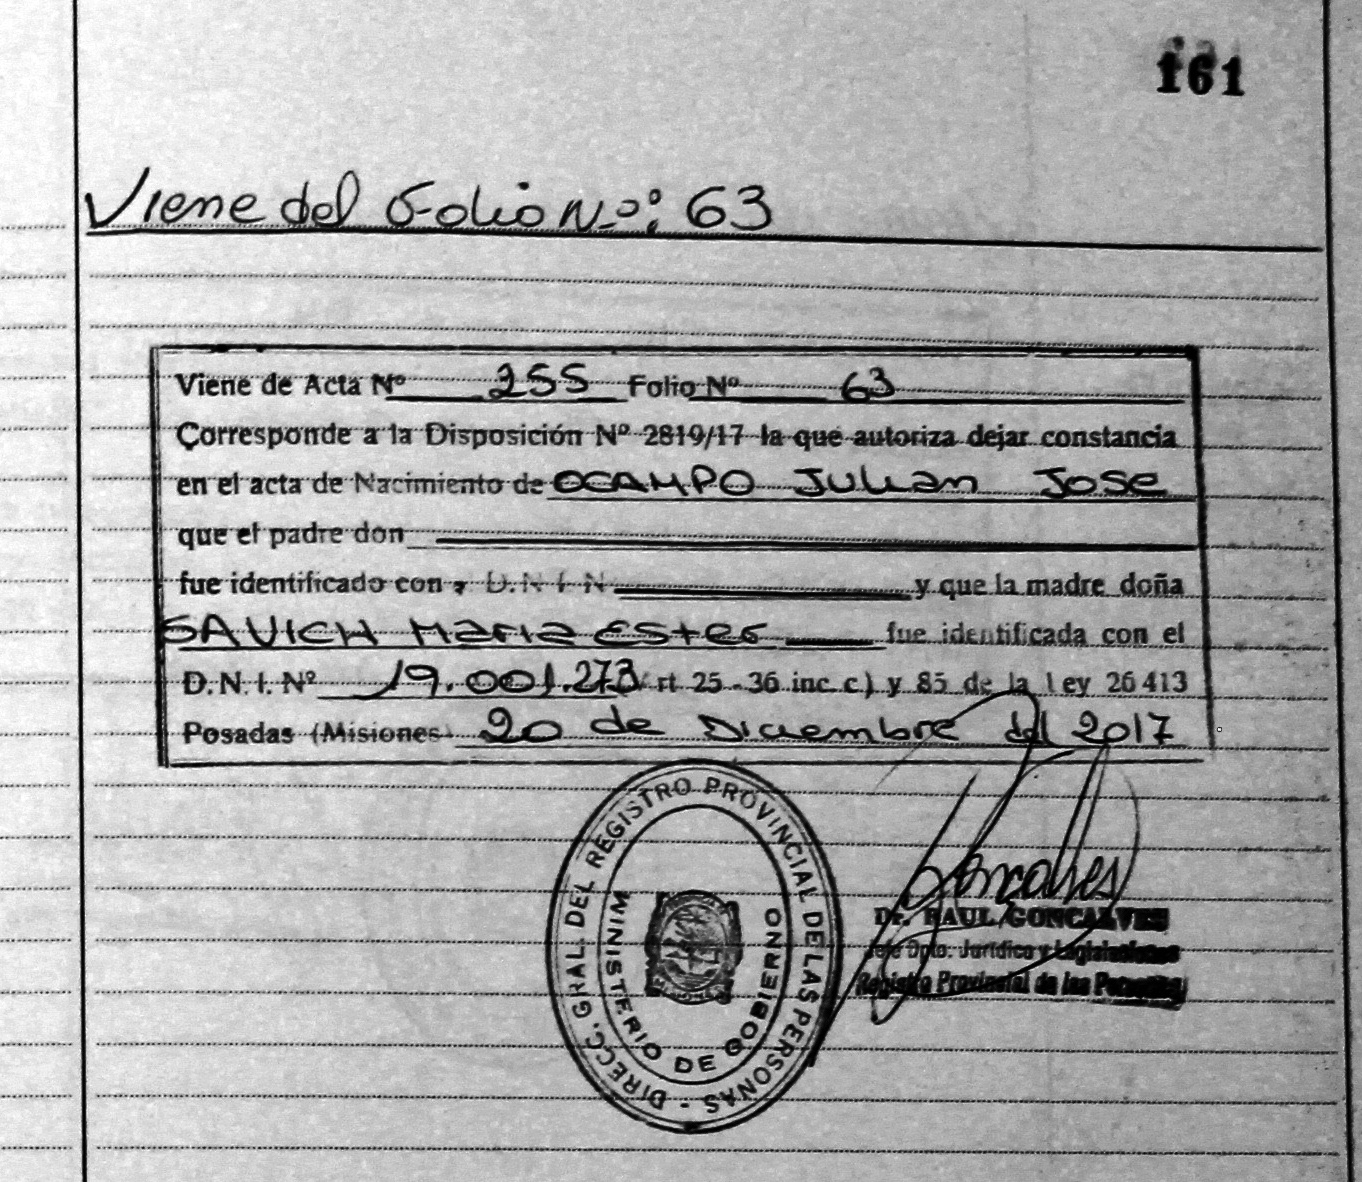 161
Viene del Folio Nº: 63
Viene de Acta Nº 255 Folio Nº 63
Corresponde a la Disposición Nº 2819/17 la que autoriza dejar constancia
en el acta de Nacimiento de OCAMPO Julian Jose
que el padre don
fue identificado con D.N.I. N y que la madre doña
SAVICH Maria Ester fue identificada con el
D.N.I. Nº 19.001.273 rt 25-36 inc c) y 85 de la Ley 26413
Posadas (Misiones 20 de Diciembre del 2017
DIRECC. GRAL. DEL REGISTRO PROVINCIAL DE LAS PERSONAS -
MINISTERIO DE GOBIERNO
MISIONES
Goncalves
Dr. RAUL GONCALVES
Jefe Dpto. Jurídico y Legislaciones
Registro Provincial de las Personas